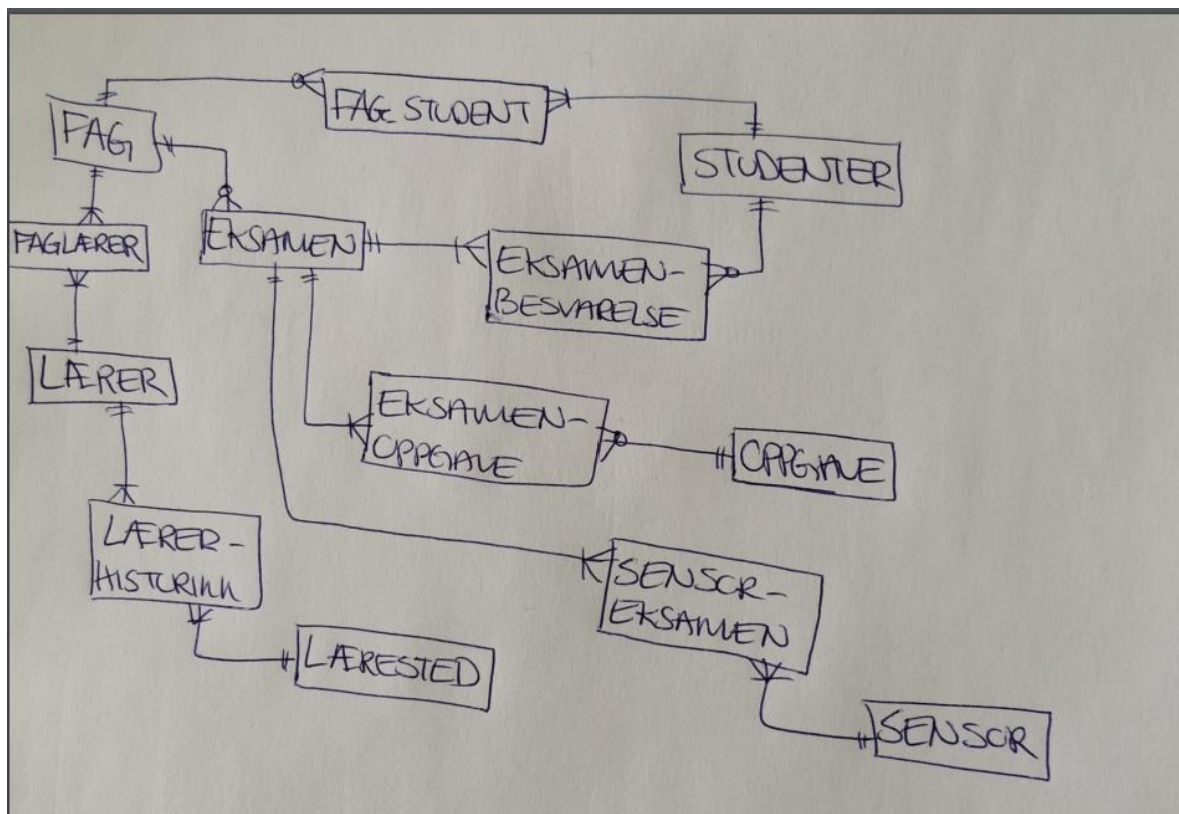 FAG STUDENT
FAG
STUDENTER
FAGLÆRER
EKSAMEN
EKSAMEN-
BESVARELSE
LÆRER
EKSAMEN-
OPPGAVE
OPPGAVE
LÆRER-
HISTORIKK
SENSOR-
EKSAMEN
LÆRESTED
SENSOR